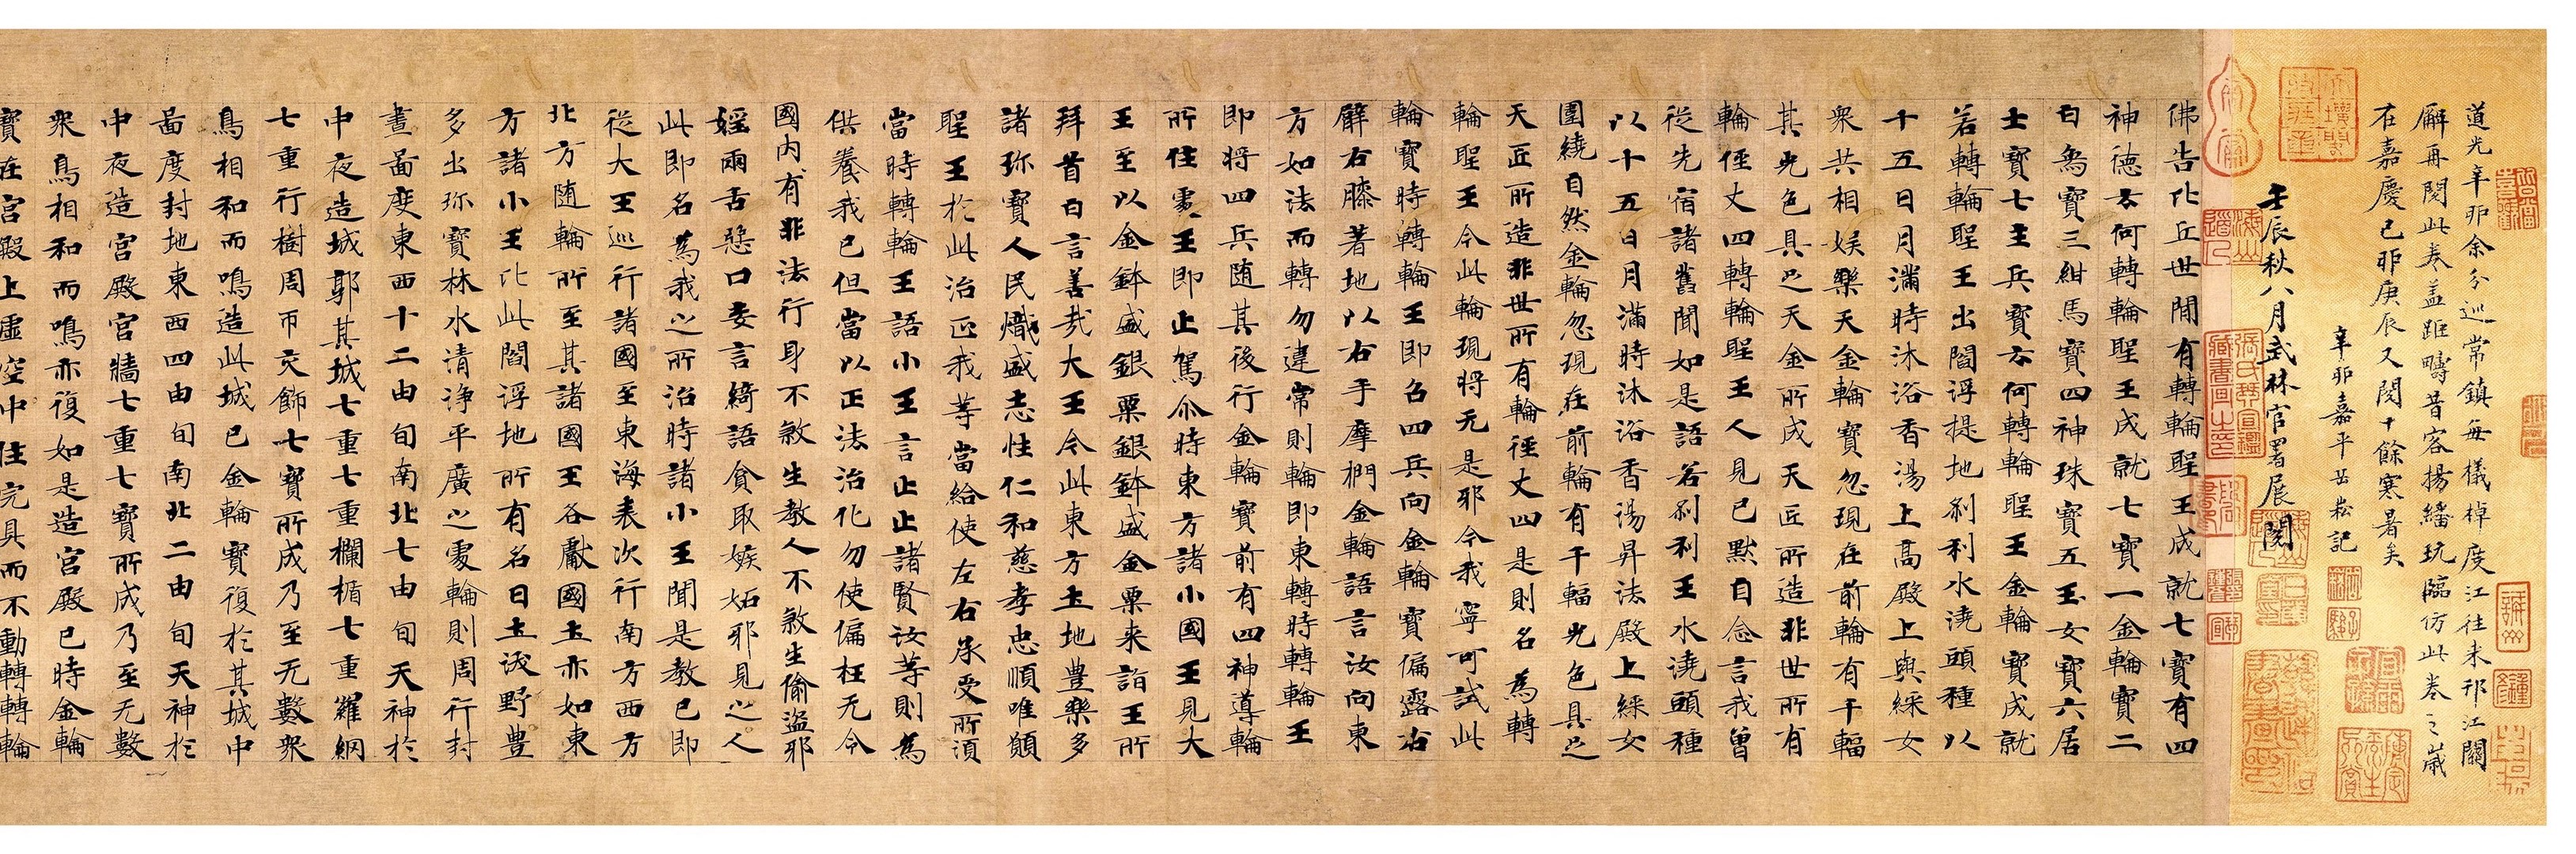 道光辛卯余分巡常鎮每檥棹度江往来邗江關
廨再閱此卷盖距疇昔容揚繙玩臨仿此卷之歲
在嘉慶己卯庚辰又閱十餘寒暑矣
辛卯嘉平岳崧記
壬辰秋八月武林官署展閱
佛告比丘世間有轉輪聖王成就七寶有四
神德云何轉輪聖王成就七寶一金輪寶二
白為寶三紺馬寶四神珠寶五玉女寶六居
士寶七主兵寶云何轉輪聖王金輪寶成就
若轉輪聖王出閻浮提地刹利水澆頭種以
十五日月滿時沐浴香湯上高殿上與綵女
衆共相娛樂天金輪寶忽現在前輪有千輻
其光色具足天金所成天匠所造非世所有
輪徑丈四轉輪聖王人見已默自念言我曾
從先宿諸舊聞如是語若刹利王水澆頭種
以十五日月滿時沐浴香湯昇法殿上綵女
圍繞自然金輪忽現在前輪有千輻光色具足
天匠所造非世所有輪徑丈四是則名為轉
輪聖王今此輪現將无是耶今我寧可試此
輪寶時轉輪王即召四兵向金輪寶偏露右
臂右膝著地以右手摩捫金輪語言汝向東
方如法而轉勿違常則輪即東轉時轉輪王
即將四兵随其後行金輪寶前有四神導輪
所住處王即止駕尒時東方諸小國王見大
王至以金鉢盛銀粟銀鉢盛金粟来詣王所
拜首白言善哉大王今此東方土地豊樂多
諸珎寶人民熾盛志性仁和慈孝忠順唯願
聖王於此治正我等當給使左右承受所須
當時轉輪王語小王言止止諸賢汝等則為
供養我已但當以正法治化勿使偏枉无令
國内有非法行身不煞生教人不煞生偷盗耶
婬兩舌惡口妄言綺語貪取嫉妬耶見之人
此即名為我之所治時諸小王聞是教已即
從大王巡行諸國至東海表次行南方西方
北方随輪所至其諸國王各獻國土亦如東
方諸小王比此閻浮地所有名曰土沃野豊
多出珎寶林水清浄平廣之處輪則周行封
畫啚度東西十二由旬南北七由旬天神於
中夜造城郭其城七重七重欄楯七重羅網
七重行樹周帀交飾七寶所成乃至无數衆
鳥相和而鳴造此城已金輪寶復於其城中
啚度封地東西四由旬南北二由旬天神於
中夜造宮殿宮牆七重七寶所成乃至无數
衆鳥相和而鳴亦復如是造宮殿已時金輪
寶在宮殿上虛空中住完具而不動轉轉輪